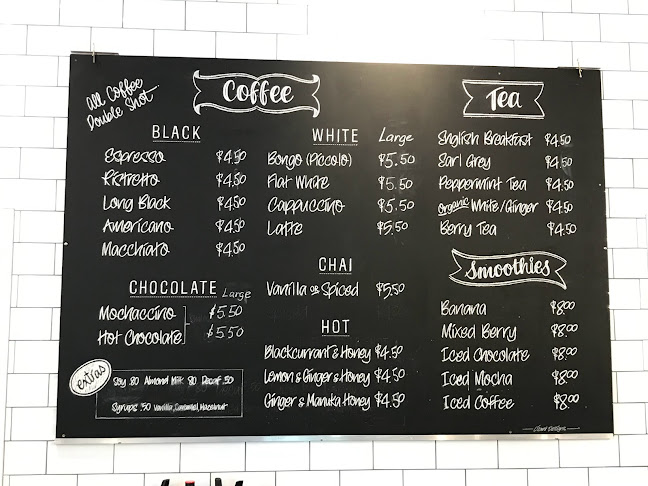 All Coffee
Double Shot
Coffee
BLACK
Espresso $4.50
Ristretto $4.50
Long Black $4.50
Americano $4.50
Macchiato $4.50
CHOCOLATE Large
Mochaccino $5.50
Hot Chocolate $5.50
extras
Soy .80 Almond Milk .80 Decaf .50
Syrups .50 Vanilla, Caramel, Hazelnut
WHITE Large
Bongo (Piccolo) $5.50
Flat White $5.50
Cappuccino $5.50
Latte $5.50
CHAI
Vanilla or Spiced $5.50
HOT
Blackcurrant & Honey $4.50
Lemon & Ginger & Honey $4.50
Ginger & Manuka Honey $4.50
Tea
English Breakfast $4.50
Earl Grey $4.50
Peppermint Tea $4.50
Organic White/Ginger $4.50
Berry Tea $4.50
Smoothies
Banana $8.00
Mixed Berry $8.00
Iced Chocolate $8.00
Iced Mocha $8.00
Iced Coffee $8.00
Designs